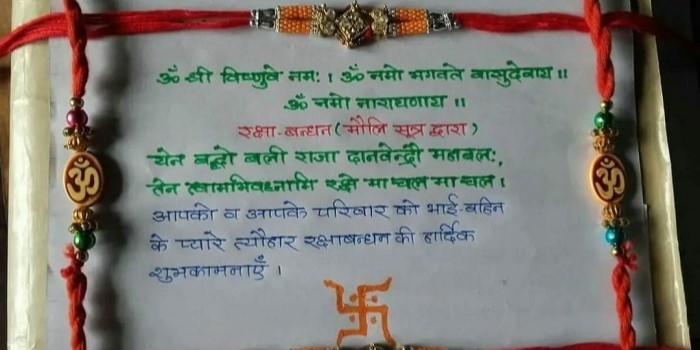 ॐ श्री विष्णुवे नमः । ॐ नमो भगवते वासुदेवाय ॥
ॐ नमो नारायणाय ॥
रक्षा-बन्धन (मौलि सूत्र द्वारा)
येन बद्धो बली राजा दानवेन्द्रो महाबलः,
तेन त्वामभिवध्नामि रक्षे मा चल मा चल ।
आपको व आपके परिवार को भाई-बहिन
के प्यारे त्यौहार रक्षाबन्धन की हार्दिक
शुभकामनाएँ ।
ॐ
ॐ